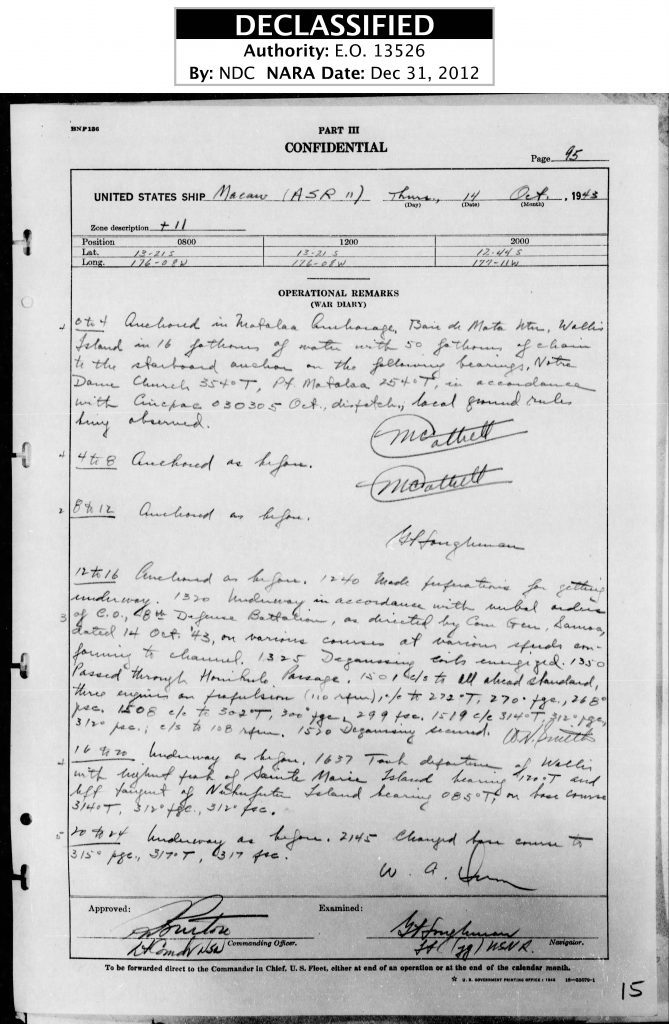 DECLASSIFIED
Authority: E.O. 13526
By: NDC NARA Date: Dec 31, 2012
BNP136
PART III
CONFIDENTIAL
Page 95
UNITED STATES SHIP Macaw (ASR 11) Thurs., 14 Oct., 1943
(Day) (Date) (Month)
Zone description +11
Position 0800 1200 2000
Lat. 13-21 S 13-21 S 12-44 S
Long. 176-08 W 176-08 W 177-11 W
OPERATIONAL REMARKS
(WAR DIARY)
0 to 4 Anchored in Matalaa Anchorage, Baie de Mata Utu, Wallis
Island in 16 fathoms of water with 50 fathoms of chain
to the starboard anchor on the following bearings, Notre
Dame Church 354°T, Pt. Matalaa 254°T, in accordance
with Cincpac 030305 Oct., dispatch, local ground rules
being observed.
4 to 8 Anchored as before.
8 to 12 Anchored as before.
12 to 16 Anchored as before. 1240 Made preparations for getting
underway. 1320 Underway in accordance with verbal orders
of C.O., 8th Defense Battalion, as directed by Com Gen, Samoa,
dated 14 Oct. '43, on various courses at various speeds con-
forming to channel. 1325 Degaussing coils energized. 1350
Passed through Honikulu Passage. 1501 c/s to all ahead standard,
three engines on propulsion (110 rpm); c/c to 272°T, 270° pgc., 268°
psc. 1508 c/c to 302°T, 300° pgc., 299 psc. 1519 c/c 314°T, 312° pgc,
312° psc.; c/s to 108 rpm. 1530 Degaussing secured.
16 to 20 Underway as before. 1637 Took departure of Wallis
with highest peak of Sainte Marie Island bearing 120°T and
left tangent of Island bearing 085°T, on base course
314°T, 312° pgc., 312° psc.
20 to 24 Underway as before. 2145 Changed base course to
315° pgc., 317°T, 317 psc.
Approved: Examined:
Lt Comdr USN Commanding Officer. Lt (jg) USNR. Navigator.
To be forwarded direct to the Commander in Chief, U. S. Fleet, either at end of an operation or at the end of the calendar month.
15